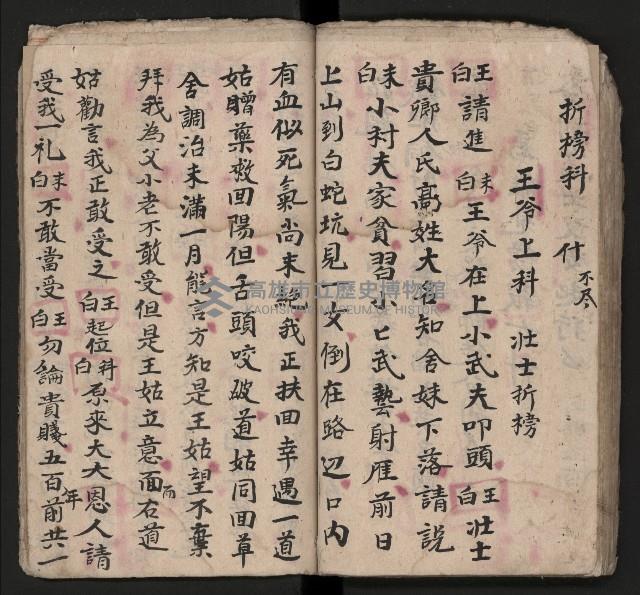 折榜科 什不尽
王爷上科 壮士折榜
王白請進 末白王爷在上小武夫叩頭 王白壮士
貴鄉人氏高姓大名知舍妹下落請說
末白小村夫家貧習小七武藝射雁前日
上山到白蛇坑見一女倒在路辺口内
有血似死氣尚未絕我正扶回幸遇一道
姑贈藥救回陽但舌頭咬破道姑同回草
舍調治未滿一月能言方知是王姑望不棄
拜我為父小老不敢受但是王姑立意面右道
姑勸言我正敢受之 王白起位 科白原來大大恩人請
受我一礼 末白不敢當受 王白勿論貴賤五百年前共一
高雄市立歷史博物館
KAOHSIUNG MUSEUM OF HISTORY